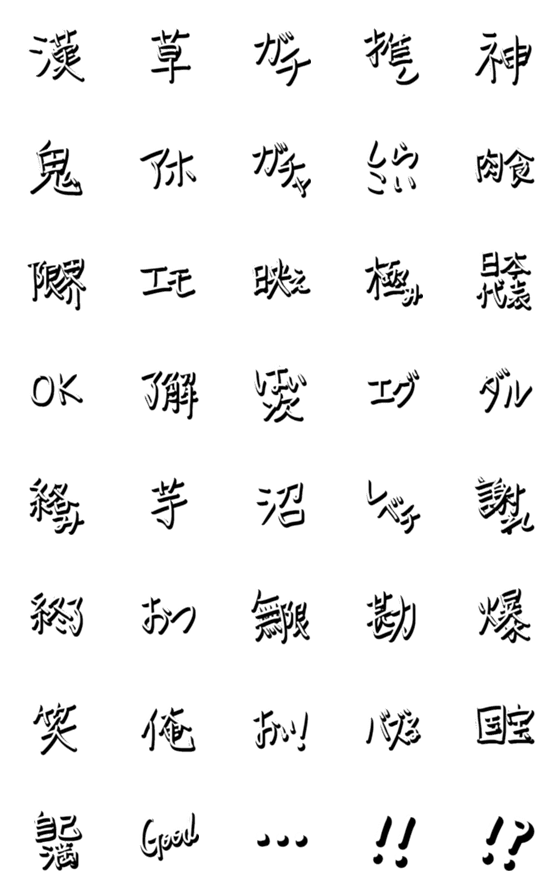 漢 草 ガチ 推し 神
鬼 アホ ガチャ しら こい 肉食
限界 エモ 映え 極み 日本 代表
OK 了解 はい 次 エグ ダル
終み 芋 沼 レベチ 謝れ
終了 おつ 無限 勘 爆
笑 俺 おい! バズる 国宝
自己 満 Good ... !! !?